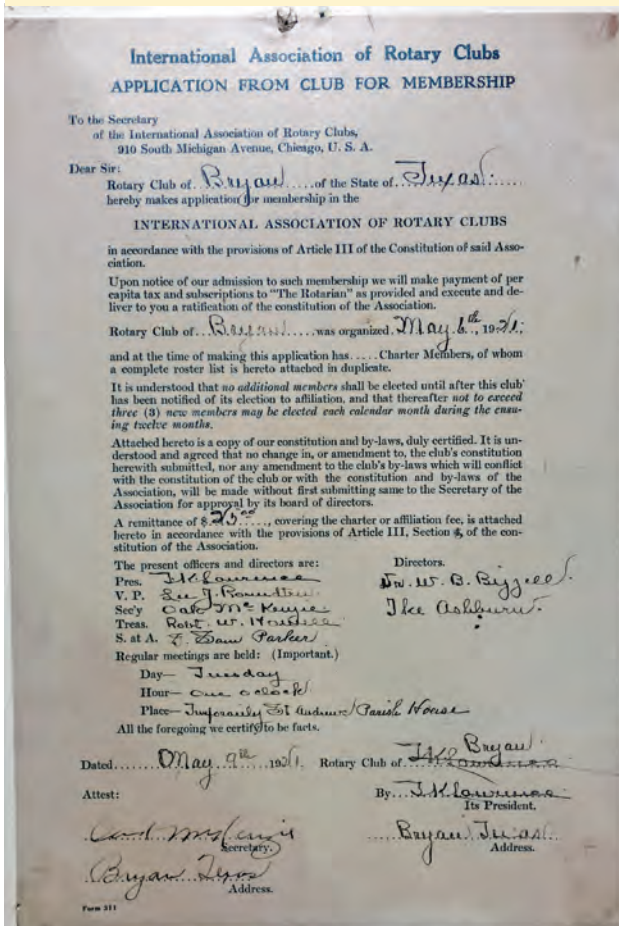 International Association of Rotary Clubs
APPLICATION FROM CLUB FOR MEMBERSHIP
To the Secretary
of the International Association of Rotary Clubs,
910 South Michigan Avenue, Chicago, U. S. A.
Dear Sir:
Rotary Club of Bryan of the State of Texas
hereby makes application for membership in the
INTERNATIONAL ASSOCIATION OF ROTARY CLUBS
in accordance with the provisions of Article III of the Constitution of said Asso-
ciation.
Upon notice of our admission to such membership we will make payment of per
capita tax and subscriptions to "The Rotarian" as provided and execute and de-
liver to you a ratification of the constitution of the Association.
Rotary Club of Bryan was organized May 6th, 1921;
and at the time of making this application has ..... Charter Members, of whom
a complete roster list is hereto attached in duplicate.
It is understood that no additional members shall be elected until after this club
has been notified of its election to affiliation, and that thereafter not to exceed
three (3) new members may be elected each calendar month during the ensu-
ing twelve months.
Attached hereto is a copy of our constitution and by-laws, duly certified. It is un-
derstood and agreed that no change in, or amendment to, the club's constitution
herewith submitted, nor any amendment to the club's by-laws which will conflict
with the constitution of the club or with the constitution and by-laws of the
Association, will be made without first submitting same to the Secretary of the
Association for approval by its board of directors.
A remittance of $ 25.00, covering the charter or affiliation fee, is attached
hereto in accordance with the provisions of Article III, Section , of the con-
stitution of the Association.
The present officers and directors are: Directors.
Pres. J.K. Lawrence Dr. W. B. Bizzell.
V. P. Lee J. Ike Ashburn.
Sec'y McKenzie
Treas. Robt. W.
S. at A. F. Parker
Regular meetings are held: (Important.)
Day— Tuesday
Hour— One o'clock
Place— Temporarily St Andrews Parish House
All the foregoing we certify to be facts.
Bryan
Dated May 9th 1921. Rotary Club of
Attest: By
Its President.
McKenzie Bryan Texas
Secretary. Address.
Bryan Texas
Address.
Form 311